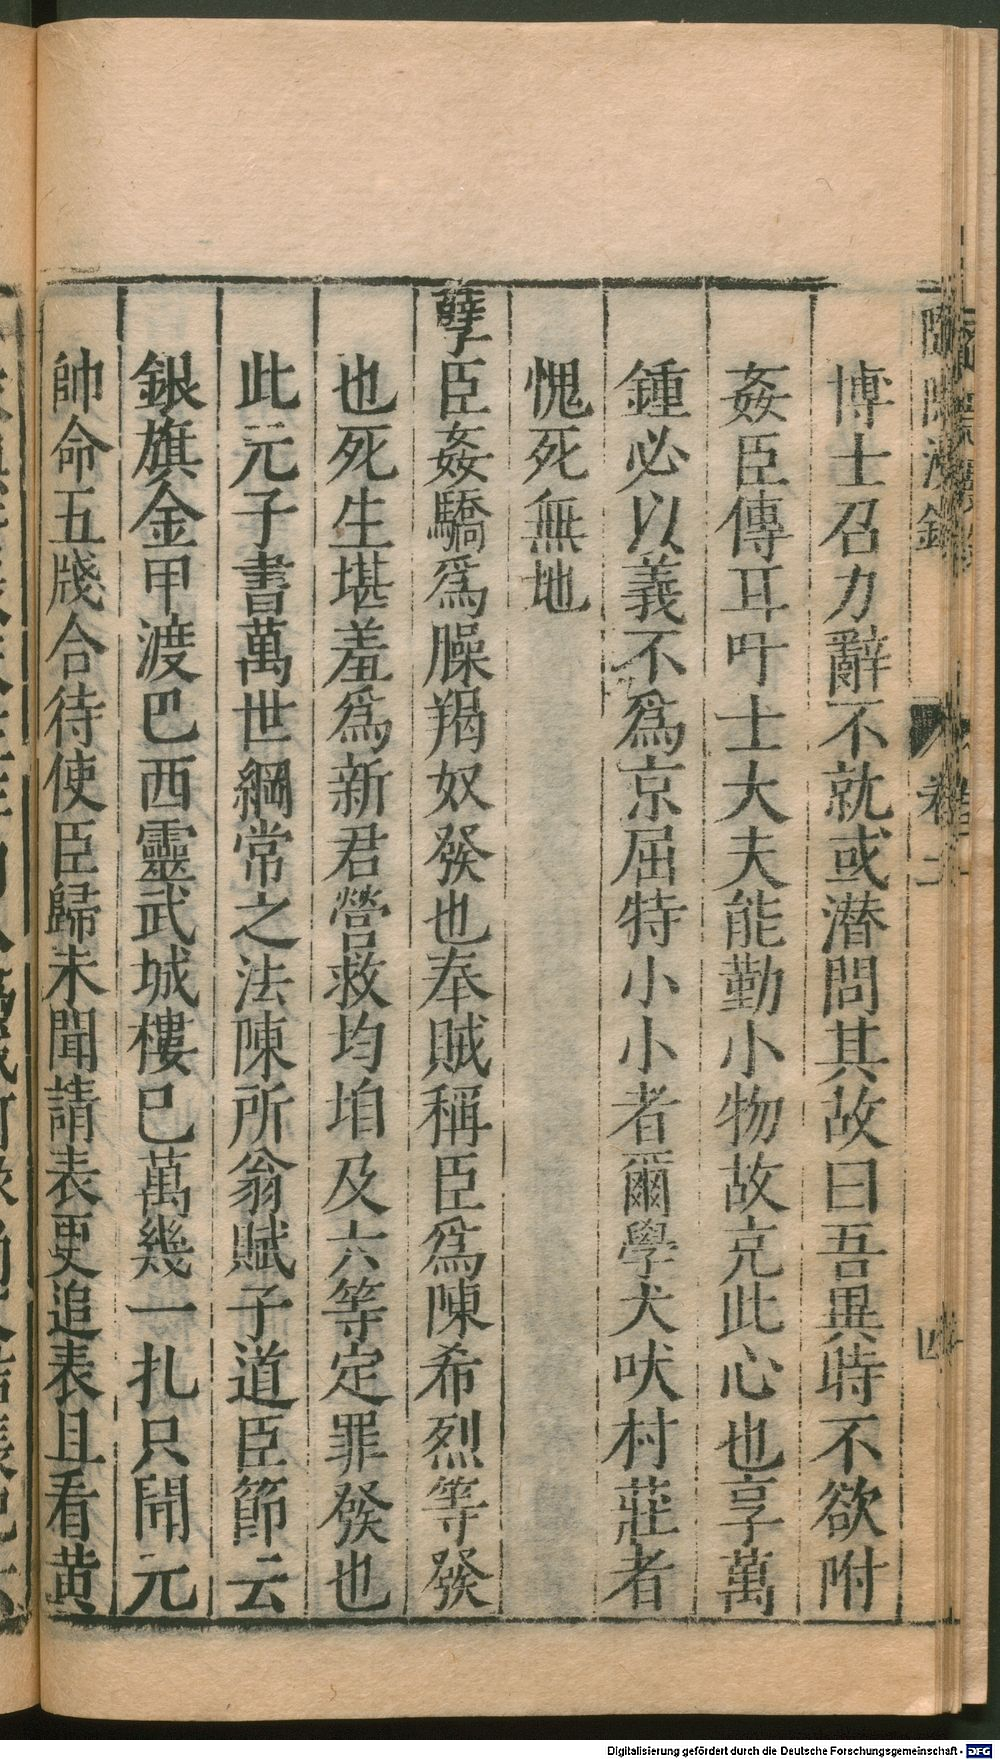 博士召力辭不就或潜問其故曰吾異時不欲附
姦臣傳耳叶士大夫能勤小物故克此心也享萬
鍾必以義不爲京屈特小小者爾學犬吠村莊者
愧死無地
孽臣姦驕爲臊羯奴發也奉賊稱臣爲陳希烈等發
也死生堪羞爲新君營救均垍及六等定罪發也
此元子書萬世綱常之法陳所翁賦子道臣節云
銀旗金甲渡巴西靈武城樓已萬幾一扎只聞元
帥命五牋合待使臣歸未聞請表更追表且看黄
卷二
四
Digitalisierung gefördert durch die Deutsche Forschungsgemeinschaft - DFG